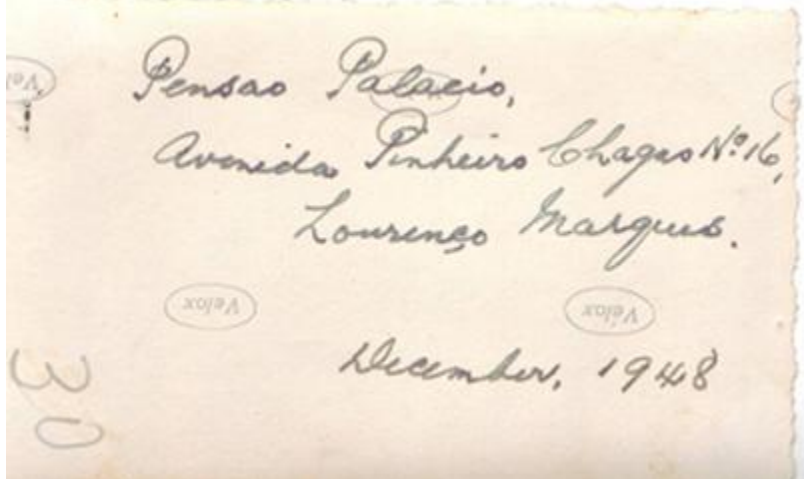 Pensao Palacio,
Avenida Pinheiro Chagas Nº 16,
Lourenço Marques.
Velox
Velox
December, 1948
30